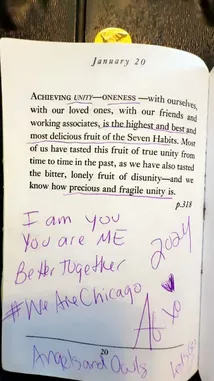 January 20
ACHIEVING UNITY—ONENESS—with ourselves,
with our loved ones, with our friends and
working associates, is the highest and best and
most delicious fruit of the Seven Habits. Most
of us have tasted this fruit of true unity from
time to time in the past, as we have also tasted
the bitter, lonely fruit of disunity—and we
know how precious and fragile unity is.
p.318
I am you
You are ME
2024
Better Together
#WeAreChicago
xo
20
Angels and Owls